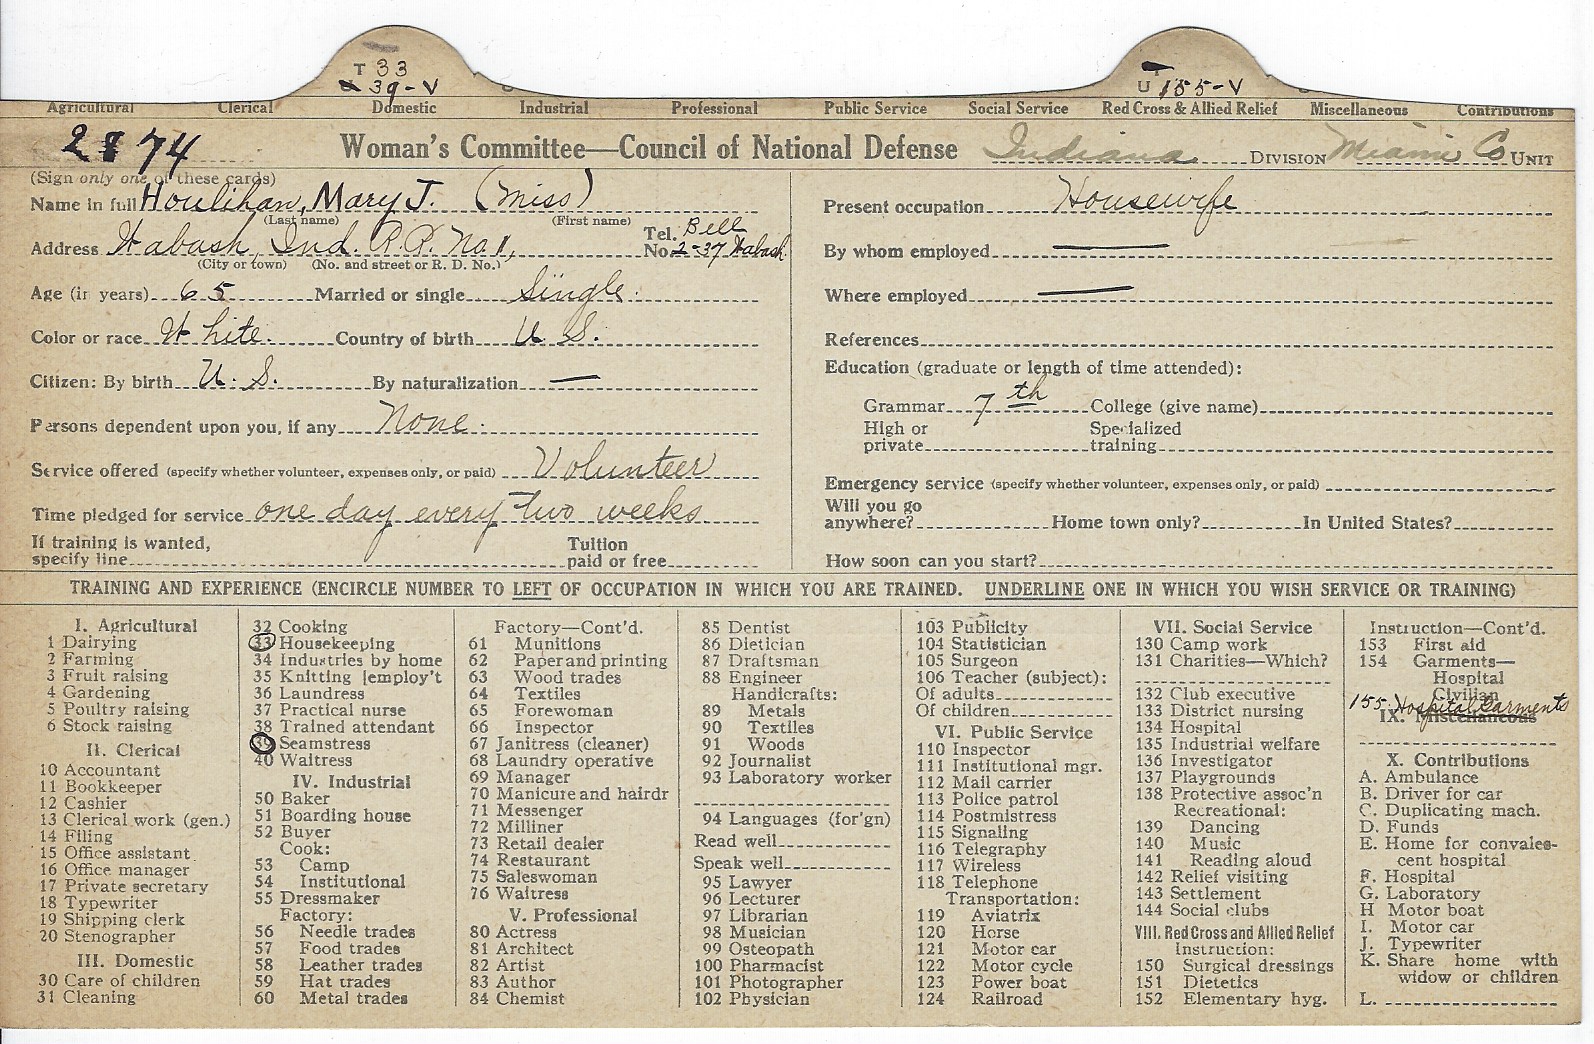 T 33
39-V
U 155-V
Agricultural Clerical Domestic Industrial Professional Public Service Social Service Red Cross & Allied Relief Miscellaneous Contributions
2874
Woman's Committee—Council of National Defense Indiana DIVISION Miami Co UNIT
(Sign only one of these cards)
Name in full Houlihan, Mary J. (Miss)
(Last name) (First name)
Address Wabash, Ind. R.R. No. 1, Tel. No. Bell 2-37 Wabash
(City or town) (No. and street or R. D. No.)
Age (in years) 65 Married or single Single.
Color or race White. Country of birth U. S.
Citizen: By birth U. S. By naturalization —
Persons dependent upon you, if any None.
Service offered (specify whether volunteer, expenses only, or paid) Volunteer
Time pledged for service one day every two weeks
If training is wanted, specify line Tuition paid or free
Present occupation Housewife
By whom employed —
Where employed —
References
Education (graduate or length of time attended):
Grammar 7th College (give name)
High or private Specialized training
Emergency service (specify whether volunteer, expenses only, or paid)
Will you go anywhere? Home town only? In United States?
How soon can you start?
TRAINING AND EXPERIENCE (ENCIRCLE NUMBER TO LEFT OF OCCUPATION IN WHICH YOU ARE TRAINED. UNDERLINE ONE IN WHICH YOU WISH SERVICE OR TRAINING)
I. Agricultural
1 Dairying
2 Farming
3 Fruit raising
4 Gardening
5 Poultry raising
6 Stock raising
II. Clerical
10 Accountant
11 Bookkeeper
12 Cashier
13 Clerical work (gen.)
14 Filing
15 Office assistant
16 Office manager
17 Private secretary
18 Typewriter
19 Shipping clerk
20 Stenographer
III. Domestic
30 Care of children
31 Cleaning
32 Cooking
33 Housekeeping
34 Industries by home
35 Knitting [employ't
36 Laundress
37 Practical nurse
38 Trained attendant
39 Seamstress
40 Waitress
IV. Industrial
50 Baker
51 Boarding house
52 Buyer
Cook:
53 Camp
54 Institutional
55 Dressmaker
Factory:
56 Needle trades
57 Food trades
58 Leather trades
59 Hat trades
60 Metal trades
Factory—Cont'd.
61 Munitions
62 Paper and printing
63 Wood trades
64 Textiles
65 Forewoman
66 Inspector
67 Janitress (cleaner)
68 Laundry operative
69 Manager
70 Manicure and hairdr
71 Messenger
72 Milliner
73 Retail dealer
74 Restaurant
75 Saleswoman
76 Waitress
V. Professional
80 Actress
81 Architect
82 Artist
83 Author
84 Chemist
85 Dentist
86 Dietician
87 Draftsman
88 Engineer
Handicrafts:
89 Metals
90 Textiles
91 Woods
92 Journalist
93 Laboratory worker
94 Languages (for'gn)
Read well
Speak well
95 Lawyer
96 Lecturer
97 Librarian
98 Musician
99 Osteopath
100 Pharmacist
101 Photographer
102 Physician
103 Publicity
104 Statistician
105 Surgeon
106 Teacher (subject):
Of adults
Of children
VI. Public Service
110 Inspector
111 Institutional mgr.
112 Mail carrier
113 Police patrol
114 Postmistress
115 Signaling
116 Telegraphy
117 Wireless
118 Telephone
Transportation:
119 Aviatrix
120 Horse
121 Motor car
122 Motor cycle
123 Power boat
124 Railroad
VII. Social Service
130 Camp work
131 Charities—Which?
132 Club executive
133 District nursing
134 Hospital
135 Industrial welfare
136 Investigator
137 Playgrounds
138 Protective assoc'n
Recreational:
139 Dancing
140 Music
141 Reading aloud
142 Relief visiting
143 Settlement
144 Social clubs
VIII. Red Cross and Allied Relief
Instruction:
150 Surgical dressings
151 Dietetics
152 Elementary hyg.
Instruction—Cont'd.
153 First aid
154 Garments—
Hospital
Civilian
155. Hospital Garments
IX. Miscellaneous
X. Contributions
A. Ambulance
B. Driver for car
C. Duplicating mach.
D. Funds
E. Home for convalescent hospital
F. Hospital
G. Laboratory
H Motor boat
I. Motor car
J. Typewriter
K. Share home with widow or children
L.